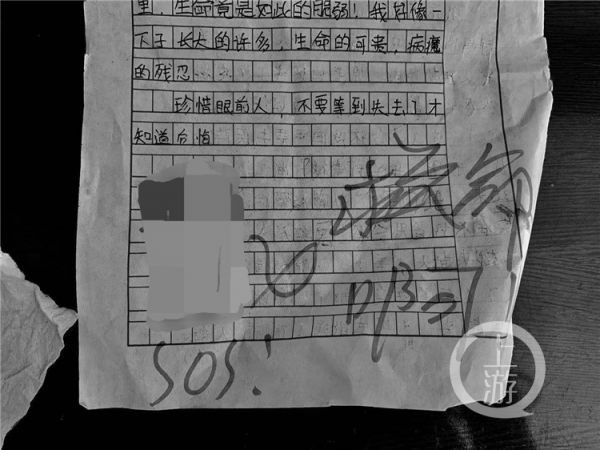 里，生命竟是如此的脆弱！我好像一
下子长大的许多，生命的可贵，病魔
的残忍……
珍惜眼前人，不要等到失去了才
知道后怕
救命
SOS!
上游